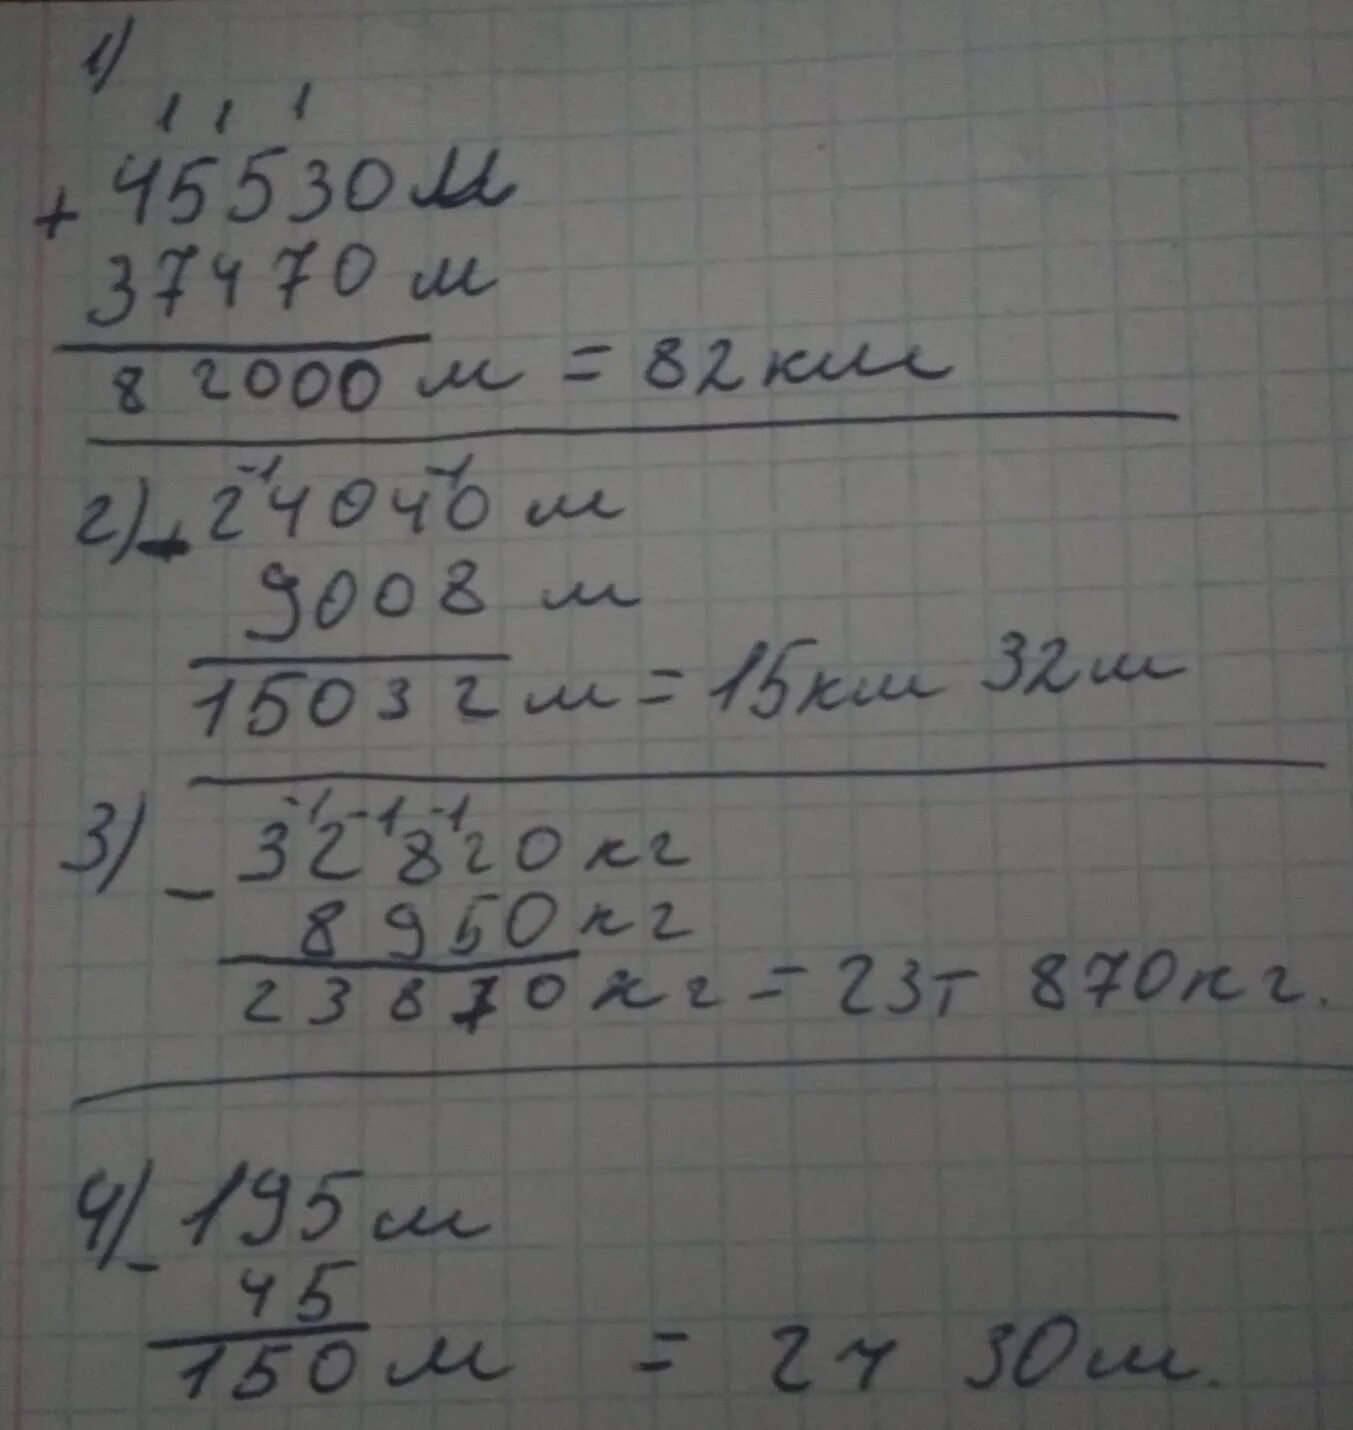 1)
1 1 1
+ 45530 м
37470 м
82000 м = 82км
2) - 24040 м
9008 м
15032 м = 15км 32м
3) - 32820 кг
8950 кг
23870 кг = 23т 870кг.
4) - 195 м
45
150 м = 2ч 30м.